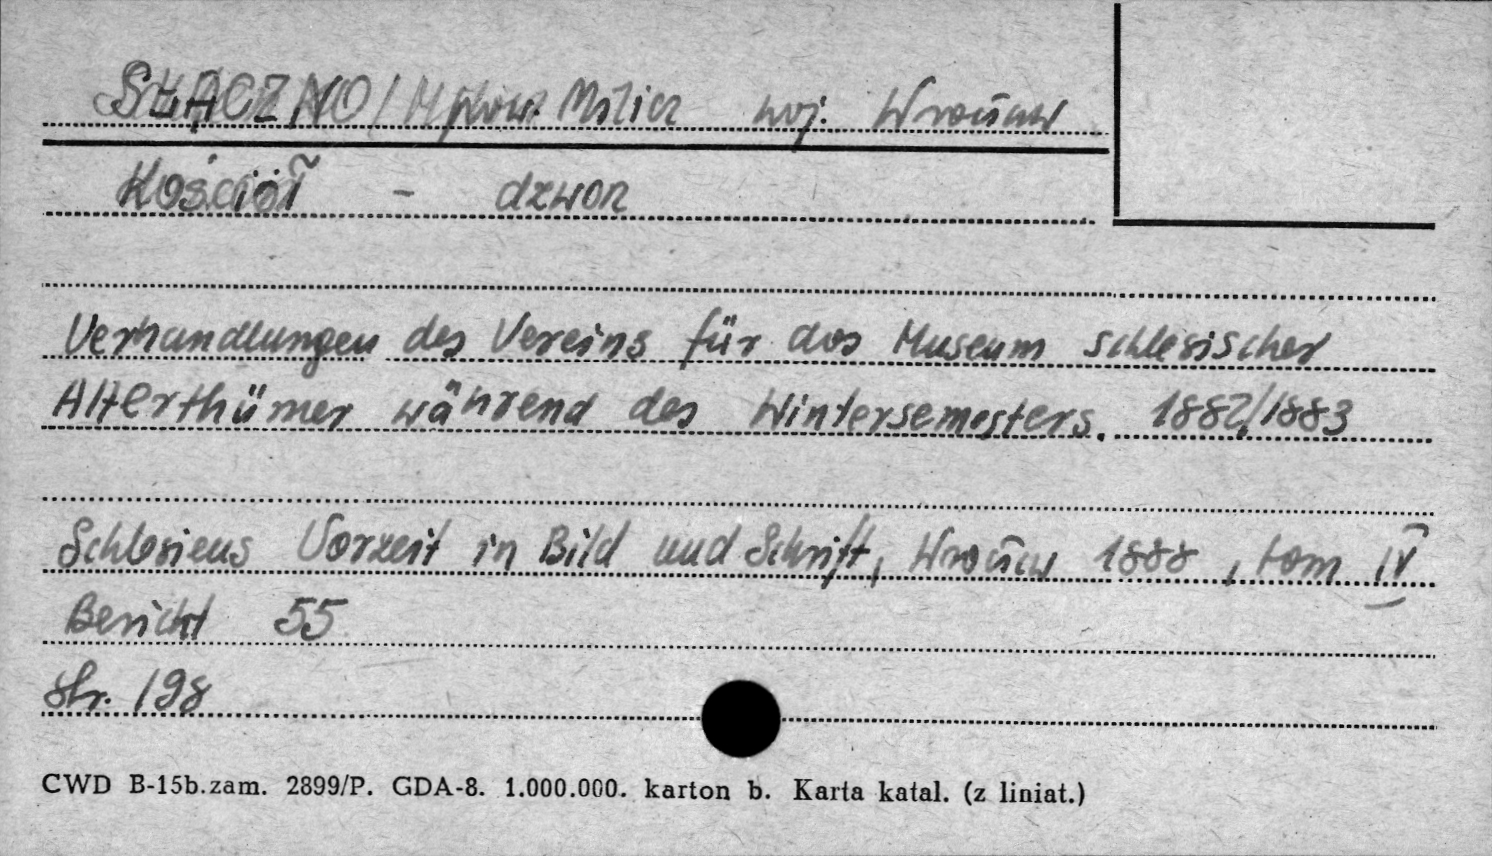 SŁĄCZNO / pow. Milicz woj. Wrocław
Kościół - dzwon
Verhandlungen des Vereins für das Museum schlesischer
Alterthümer während des Wintersemesters. 1882/1883
Schlesiens Vorzeit in Bild und Schrift, Wrocław 1888, tom IV
Bericht 55
str. 198
CWD B-15b.zam. 2899/P. GDA-8. 1.000.000. karton b. Karta katal. (z liniat.)